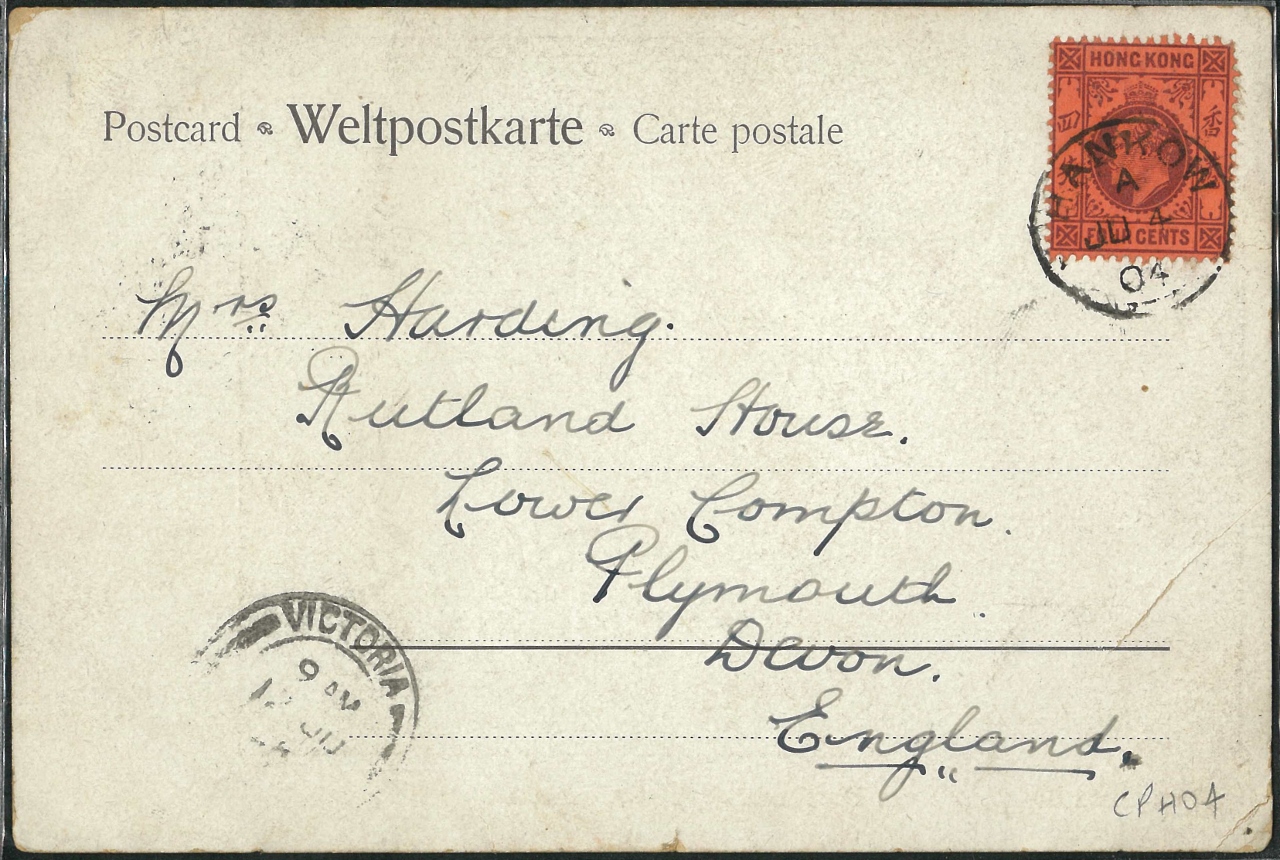 Postcard Weltpostkarte Carte postale
HONG KONG
四
香
HANKOW
A
JU 4
04
CENTS
Mrs Harding.
Rutland House.
Lower Compton.
Plymouth.
Devon.
England.
VICTORIA
9 AM
JU
CPH04